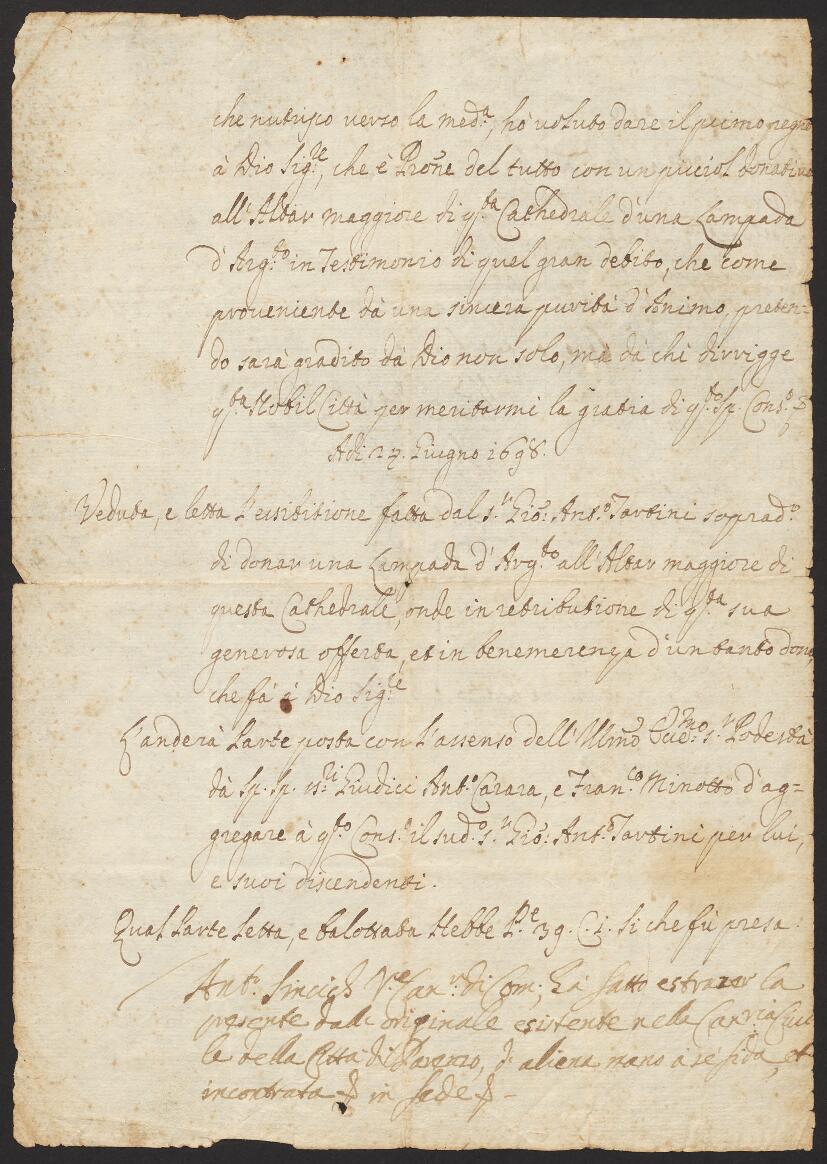 che nutrisco verso la med.ª, hò voluto dare il primo segno
à Dio Sig.re, che è Prōne del tutto con un picciol donativo
all'Altar maggiore di q.sta Cathedrale d'una Lampada
d'Arg.to in Testimonio di quel gran debito, che come
proveniente dà una sincera purità d'Animo, preten-
do sarà gradito dà Dio non solo, mà dà chi dirrigge
q.sta Nobil Città per meritarmi la gratia di q.sto Sp. Cons.o
Adi 27. Giugno 1698.
Veduta, e letta l'essibitione fatta dal s.r Gio: Ant.o Tartini soprad.o
di donar una Lampada d'Arg.to all'Altar maggiore di
questa Cathedrale, onde in retributione di q.sta sua
generosa offerta, et in benemerenza d'un tanto dono,
che fà à Dio Sig.re
L'anderà Parte posta con l'assenso dell'Illmō Ecc.mo s.r Podestà
dà Sp. Sp. ss.ri Giudici Ant.o Carara, e Fran.co Minotto d'ag-
gregare à q.sto Cons.o il sud.o s.r Gio: Ant.o Tartini per lui,
e suoi discendenti.
Qual Parte letta, e balottata Hebbe P.e 39. C. 1. si che fù presa:
Ant.o Sincich V.e Can.r di Com: hà fatto estraer la
presente dall' originale esistente nella Can.ria Civi-
le della Città di Parenzo, d' aliena mano a se fida, et
incontrata in fede